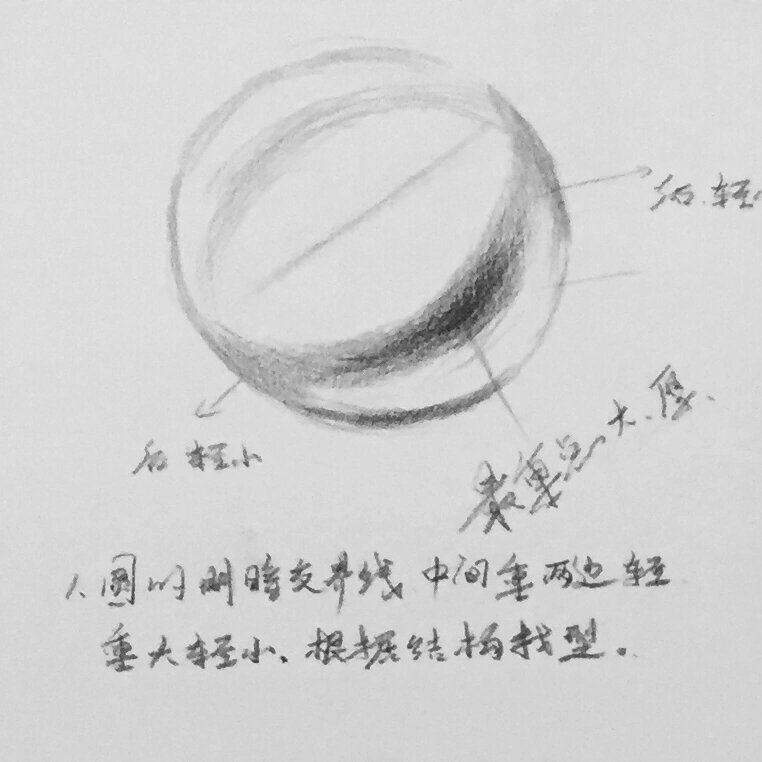 后.轻
后 轻小
最重点、大、厚、
1、圆的明暗交界线 中间重两边轻
重大轻小、根据结构找型。